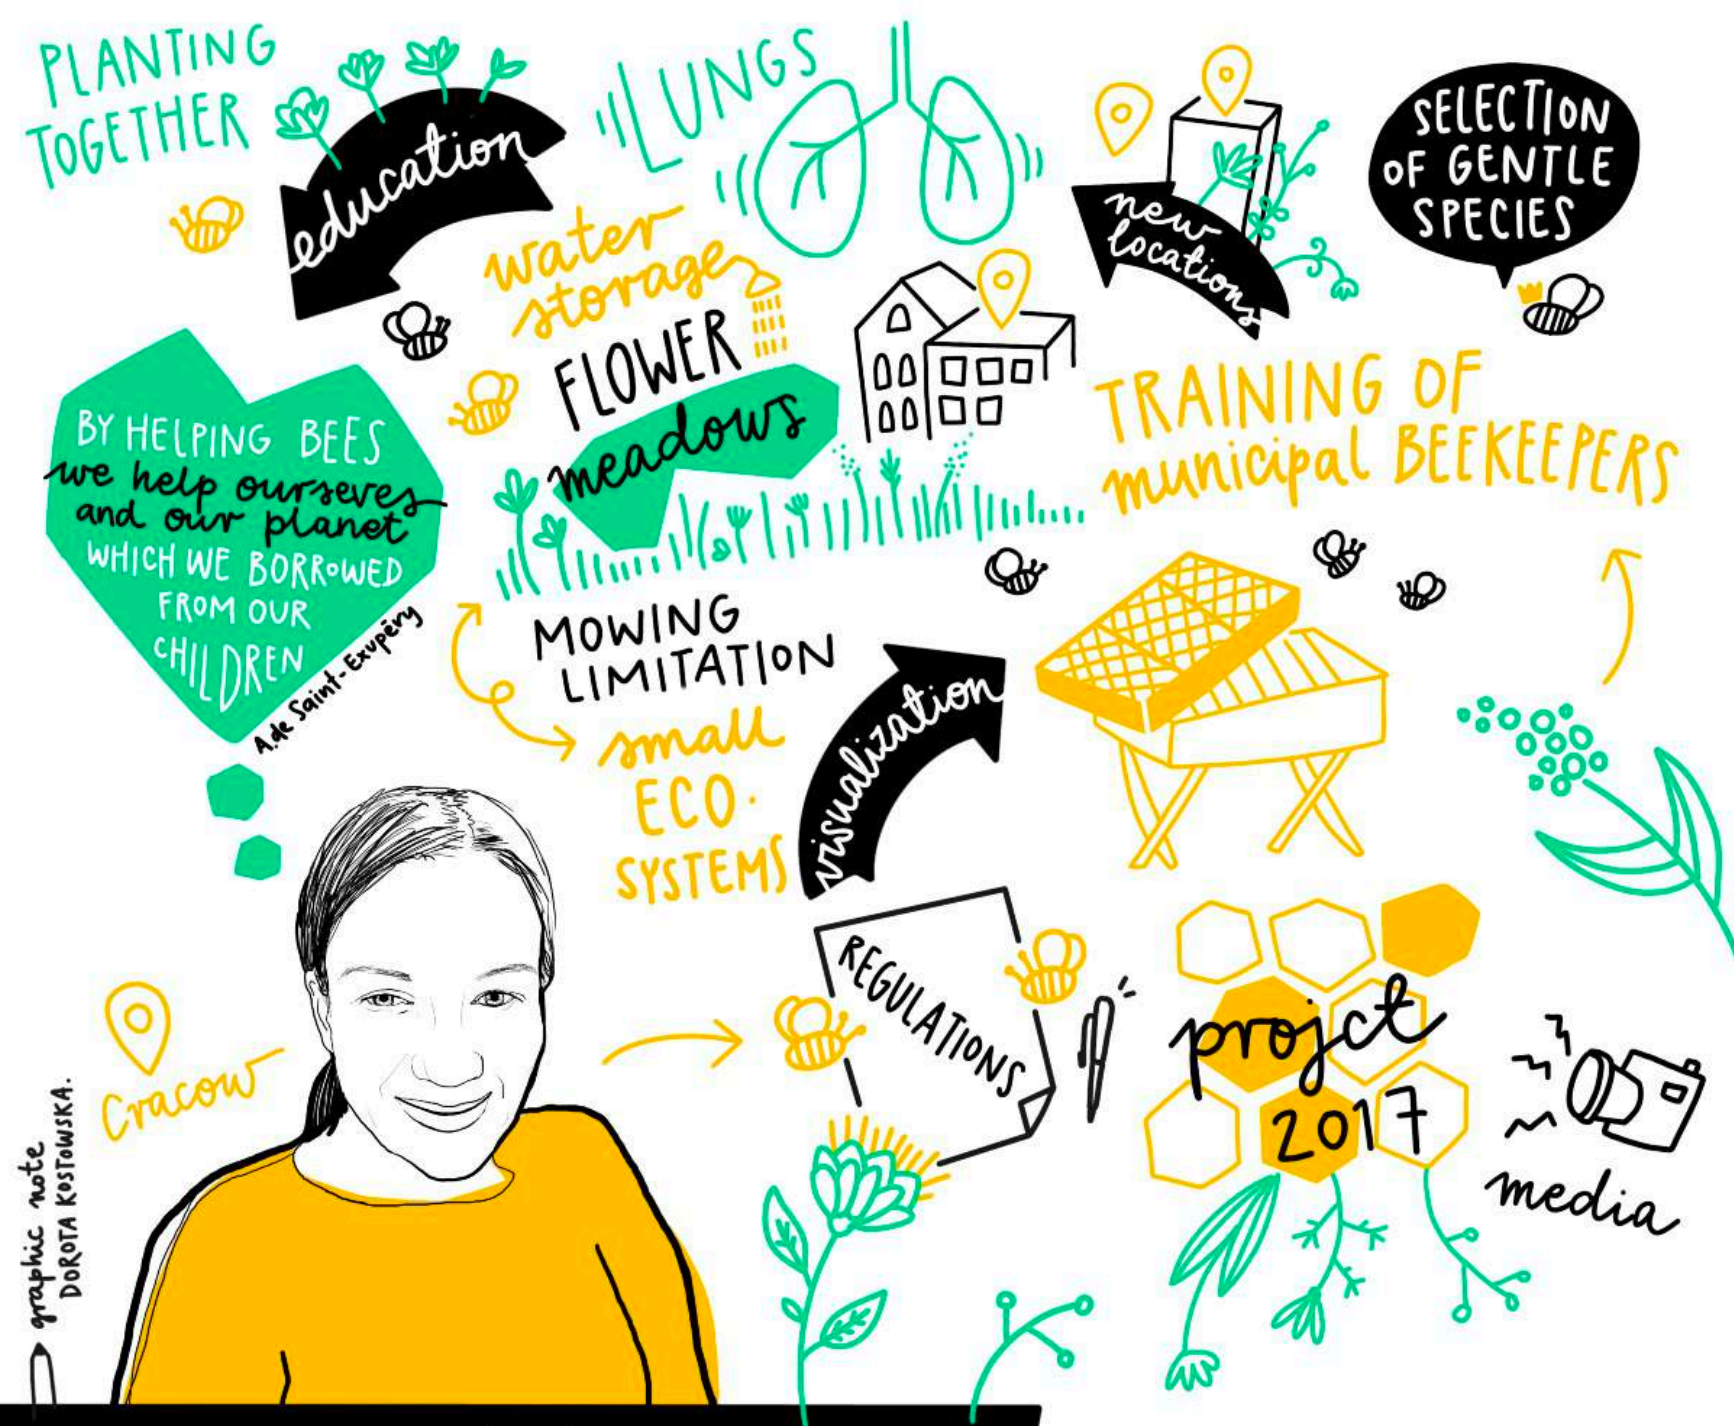 PLANTING
TOGETHER
education
LUNGS
new
locations
SELECTION
OF GENTLE
SPECIES
water
storage
FLOWER
meadows
TRAINING OF
municipal BEEKEEPERS
BY HELPING BEES
we help ourseves
and our planet
WHICH WE BORROWED
FROM OUR
CHILDREN
A.de Saint-Exupéry
MOWING
LIMITATION
small
ECO.
SYSTEMS
visualization
REGULATIONS
projct
2017
media
Cracow
graphic note
DOROTA KOSTOWSKA.